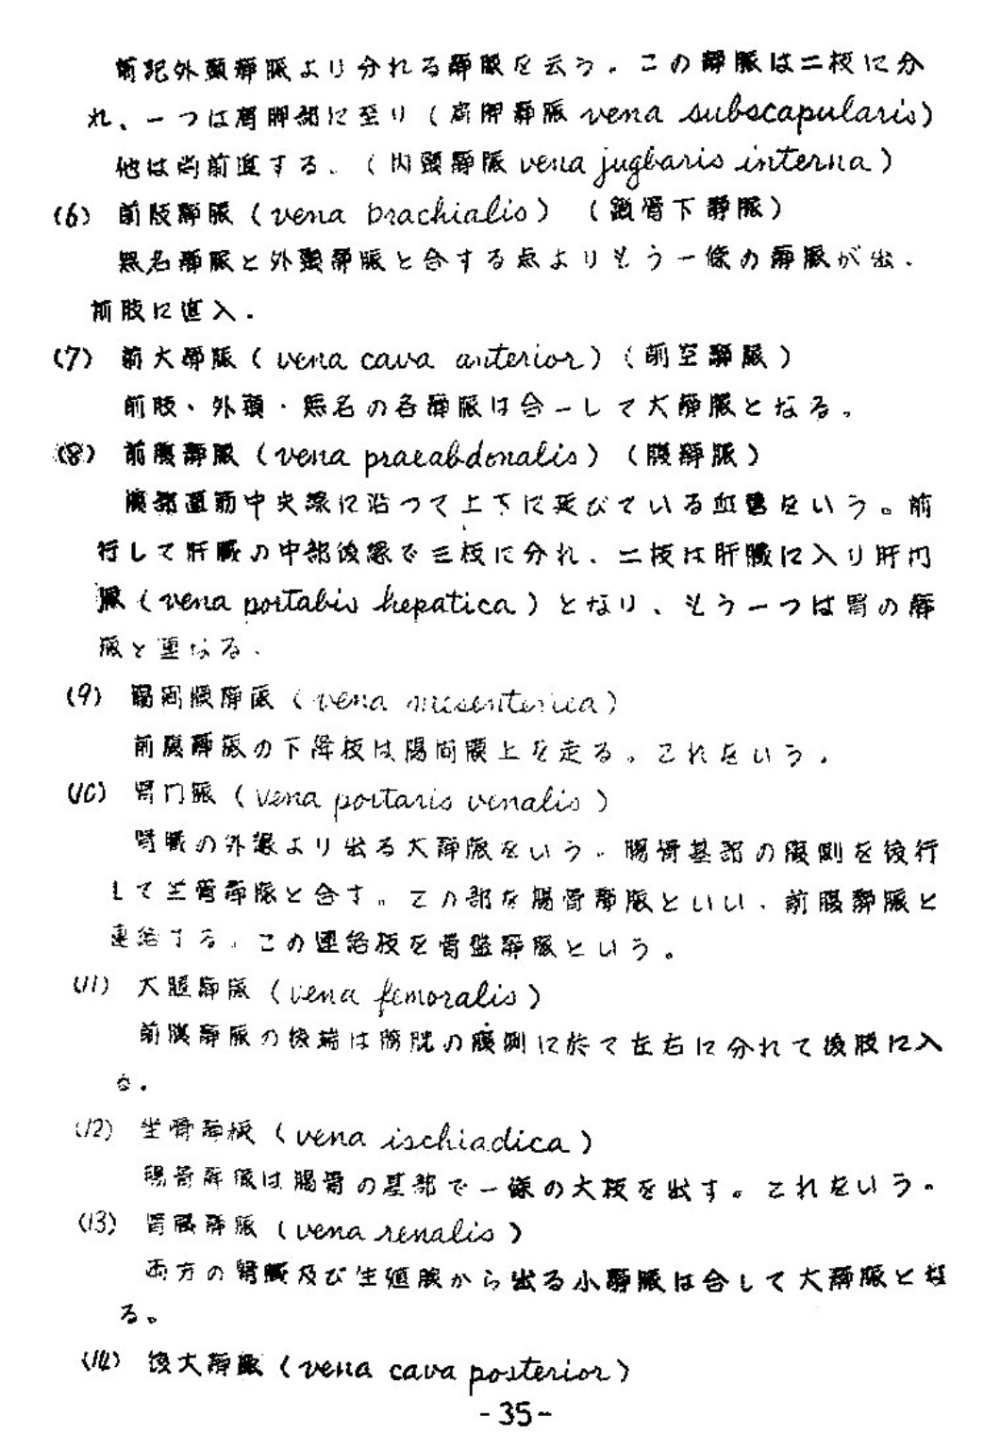 前記外頸静脈より分れる静脈を云う。この静脈は二枝に分
れ、一つは肩胛部に至り(肩胛静脈 vena subscapularis)
他は尚前進する。(内頸静脈 vena jugbaris interna)
(6) 前肢静脈(vena brachialis) (鎖骨下静脈)
無名静脈と外頸静脈と合する点よりもう一條の静脈が出、
前肢に進入.
(7) 前大静脈(vena cava anterior)(前空静脈)
前肢・外頸・無名の各静脈は合一して大静脈となる。
(8) 前腹静脈(vena praeabdonalis)(腹静脈)
腹部直筋中央線に沿つて上下に延びている血管をいう。前
行して肝臓の中部後縁で三枝に分れ、二枝は肝臓に入り肝門
脈(vena portabis hepatica)となり、もう一つは胃の静
脈と重なる.
(9) 腸間膜静脈(vena misenterica)
前腹静脈の下降枝は腸間膜上を走る。これをいう.
(10) 腎門脈(vena portaris venalis)
腎臓の外縁より出る大静脈をいう。腸骨基部の腹側を後行
して坐骨静脈と合す。この部を腸骨静脈といい、前腹静脈と
連絡する。この連絡枝を骨盤静脈という。
(11) 大腿静脈(vena femoralis)
前腹静脈の後端は膀胱の腹側に於て左右に分れて後肢に入
る.
(12) 坐骨静脈(vena ischiadica)
腸骨静脈は腸骨の基部で一條の大枝を出す。これをいう。
(13) 腎臓静脈(vena renalis)
両方の腎臓及び生殖腺から出る小静脈は合して大静脈とな
る。
(14) 後大静脈(vena cava posterior)
-35-